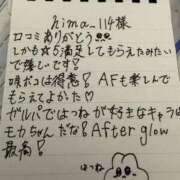 hima_114様
口コミありがとう
しかも☆5満足してもらえたみたい
で嬉しいです!
喉ボコは得意!AFも楽しんで
もらえてよかった♡
ゼルパではつねが好きなキャラは
モカちゃんだな!Afterglow
最高!
はつね